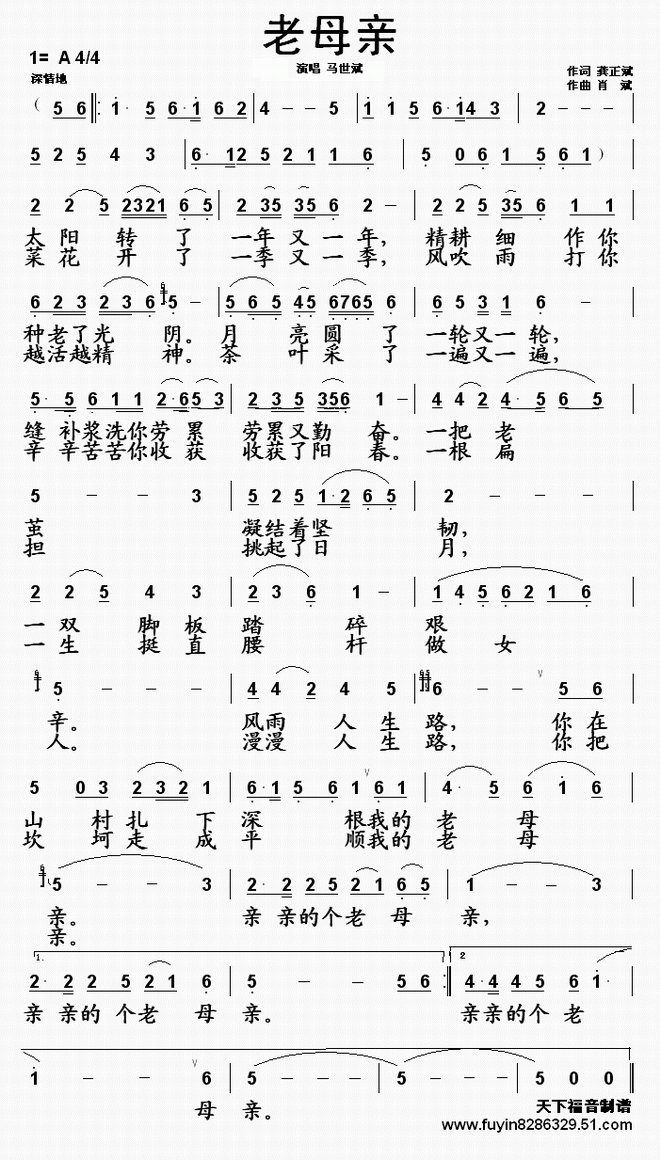 老母亲
1= A 4/4
演唱 马世斌
深情地
作词 龚正斌
作曲 肖 斌
( 5 6 ‖: 1· 5 6·1 6 2 | 4 - - 5 | 1 1 5 6·14 3 | 2 - - - |
5 2 5 4 3 | 6· 12 5 2 1 1 6 | 5 0 6 1 5 6 1 ) |
2 2 5 2321 6 5 | 2 35 35 6 2 - | 2 2 5 35 6 1 1
太 阳 转 了 一年 又 一 年, 精耕 细 作 你
菜 花 开 了 一季 又 一 季, 风吹 雨 打 你
6 2 3 2 3 6 5 - | 5 6 5 45 6765 6 | 6 5 3 1 6 - |
种老了光 阴。 月 亮 圆 了 一轮又一 轮,
越活越精 神。 茶 叶 采 了 一遍又一 遍,
5· 5 6 1 1 2·65 3 | 2 3 5 356 1 - | 4 4 2 4· 5 6 5
缝 补浆洗你劳 累 劳累又勤 奋。 一把 老
辛 辛苦苦你收 获 收获了阳 春。 一根 扁
5 - - 3 | 5 2 5 1·2 6 5 | 2 - - |
茧 凝结着坚 韧,
担 挑起了日 月,
2 2 5 4 3 | 2 3 6 1 - | 1 4 5 6 2 1 6
一 双 脚 板 踏 碎 艰
一 生 挺 直 腰 杆 做 女
5 - - | 4 4 2 4 5 | 6 - - 5 6
辛。 风雨 人 生 路, 你 在
人。 漫漫 人 生 路, 你 把
5 0 3 2 3 2 1 | 6·1 5 6 1 6 1 | 4· 5 6 1 6
山 村 扎 下 深 根我的 老 母
坎 坷 走 成 平 顺我的 老 母
5 - - 3 | 2· 2 2 5 2 1 6 5 | 1 - - 3 |
亲。 亲 亲的个老 母 亲,
亲。
1. 2
2· 2 2 5 2 1 6 | 5 - - 5 6 :‖ 4·4 4 5 6 1·
亲 亲的 个老 母 亲。 亲亲的个 老
1 - - 6 | 5 - - - | 5 - - | 5 0 0 ‖
母 亲。
天下福音制谱
www.fuyin8286329.51.com